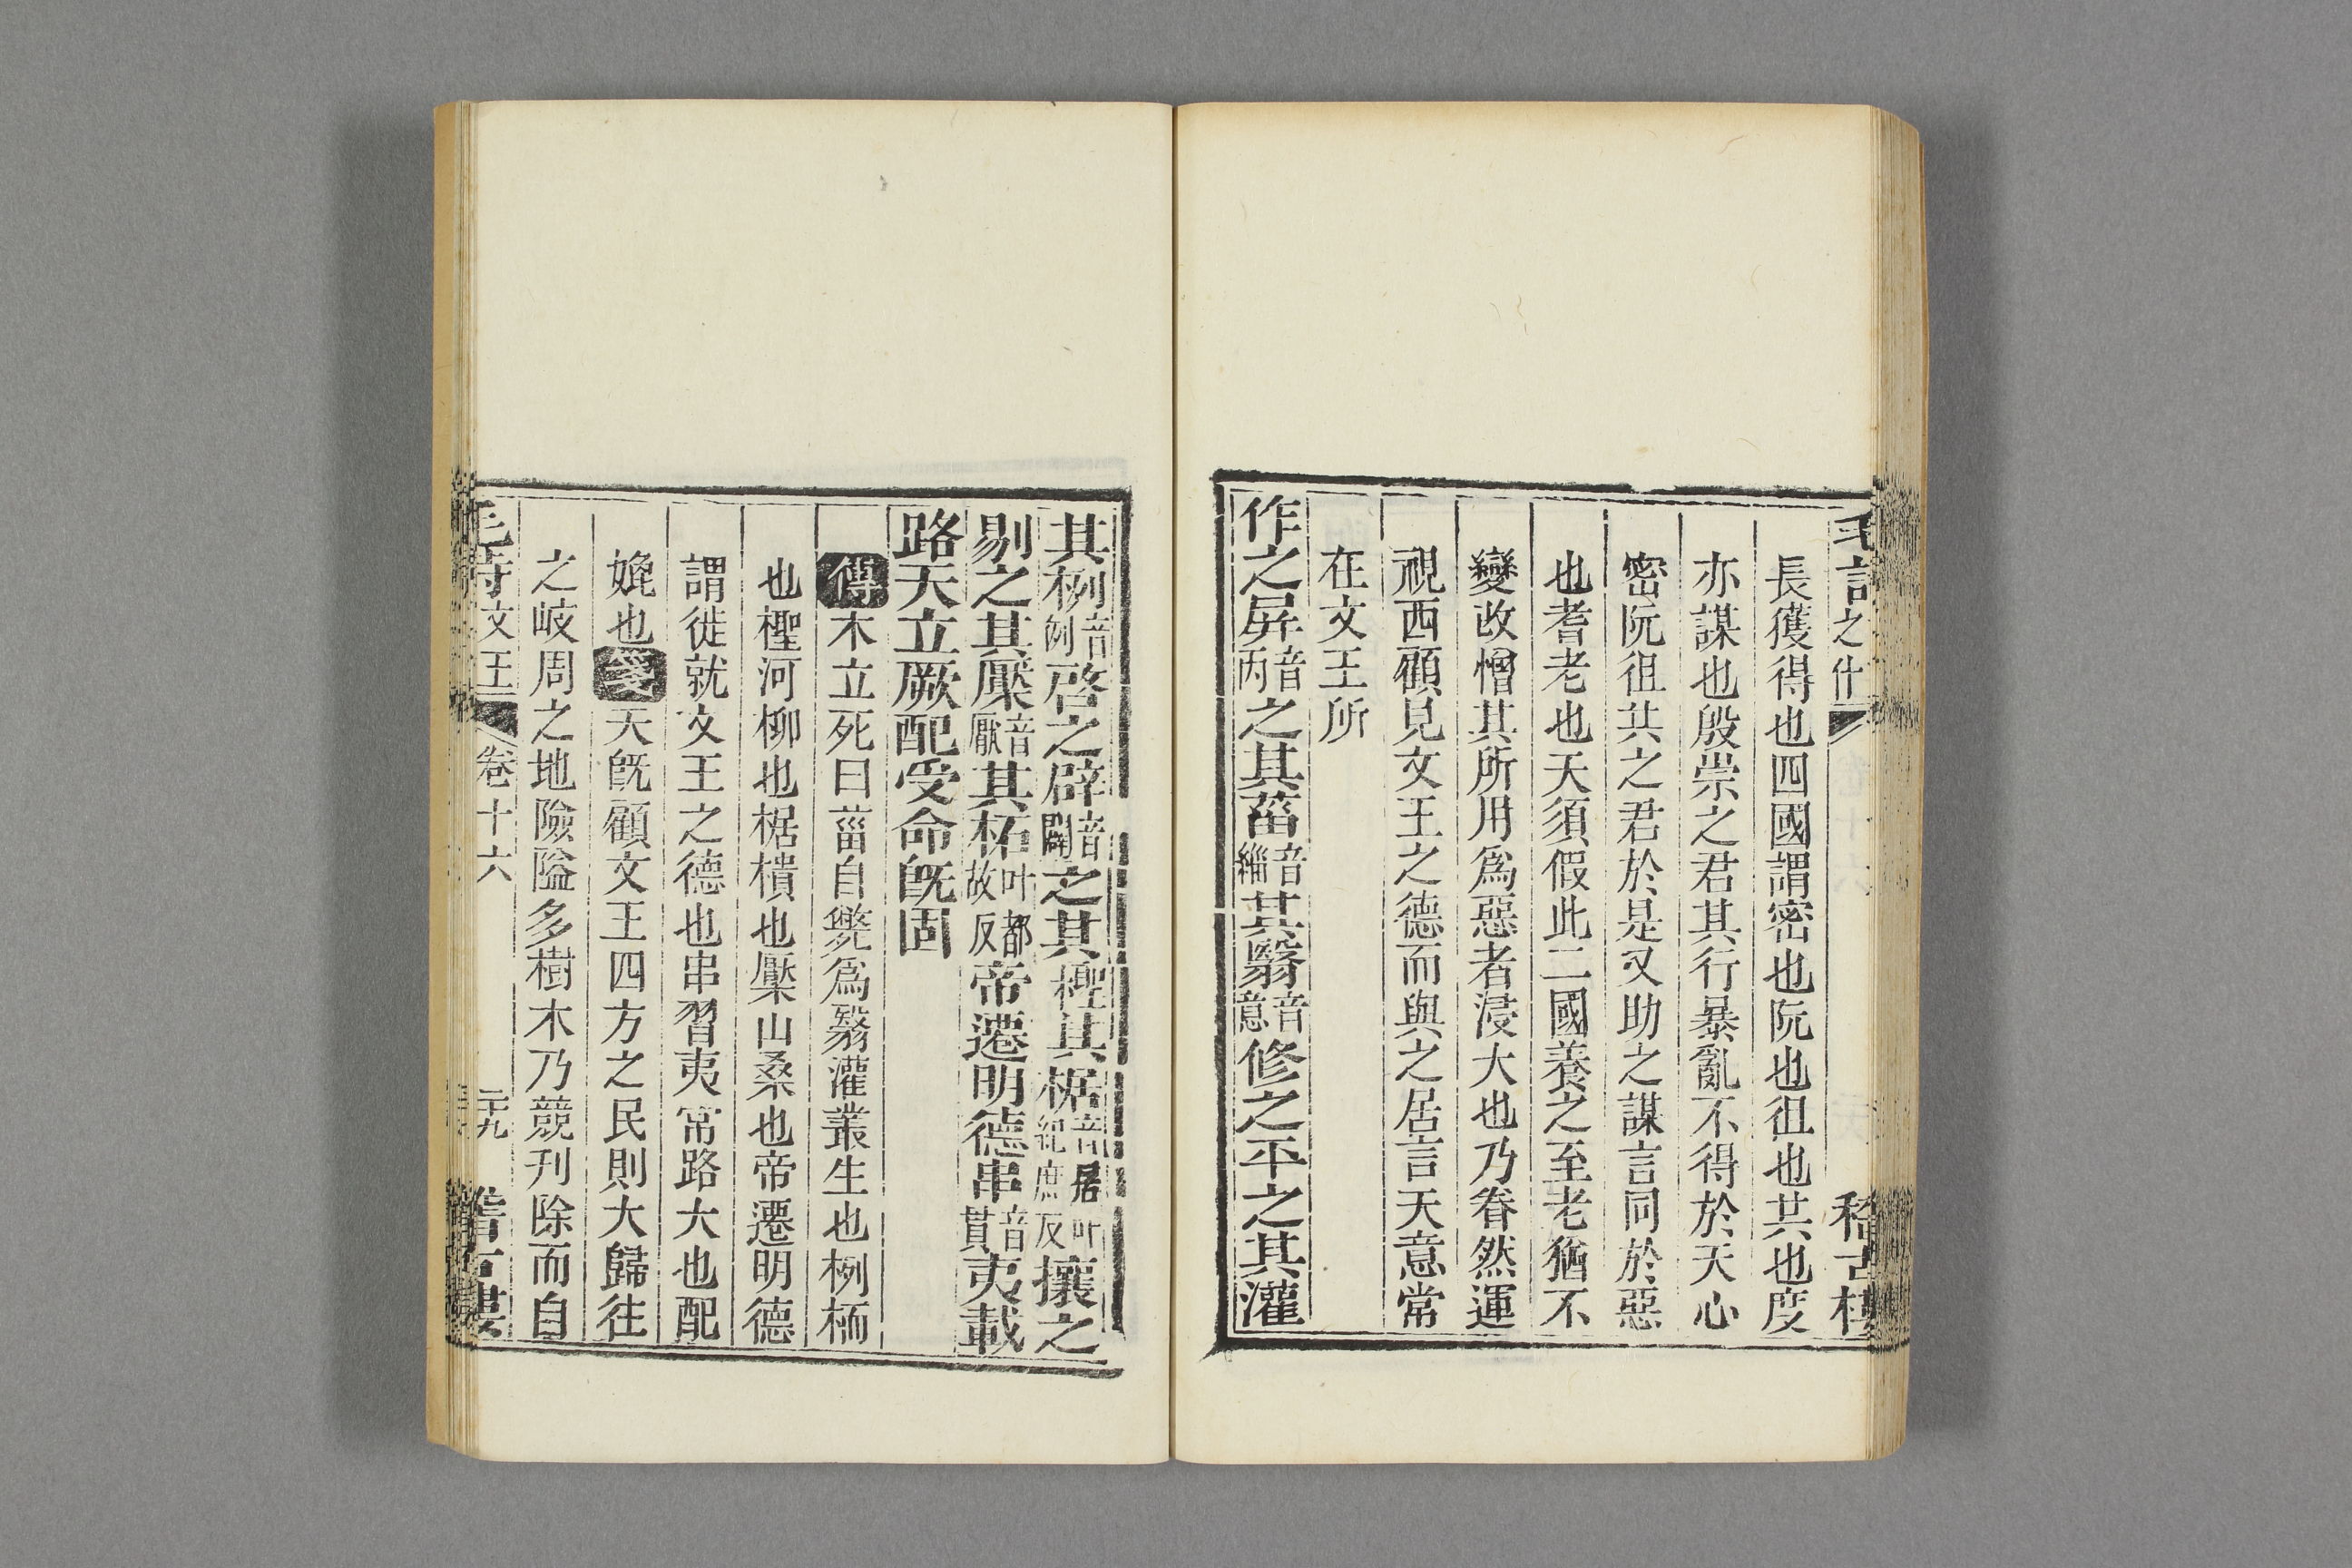 長獲得也四國謂密也阮也徂也共也度
亦謀也殷崇之君其行暴亂不得於天心
密阮徂共之君於是又助之謀言同於惡
也耆老也天須假此二國養之至老猶不
變改憎其所用爲惡者浸大也乃眷然運
視西顧見文王之德而與之居言天意常
在文王所
作之屏音丙之其菑音緇其翳音意修之平之其灌
其栵音例啓之辟音闢之其檉其椐音居叶紀庶反攘之
剔之其檿音厭其柘叶都故反帝遷明德串音貫夷載
路天立厥配受命旣固
傳木立死曰菑自斃爲翳灌叢生也栵栭
也檉河柳也椐樻也檿山桑也帝遷明德
謂徙就文王之德也串習夷常路大也配
媲也箋天旣顧文王四方之民則大歸往
之岐周之地險隘多樹木乃競刊除而自
毛詩文王 卷十六 二十九 稽古樓